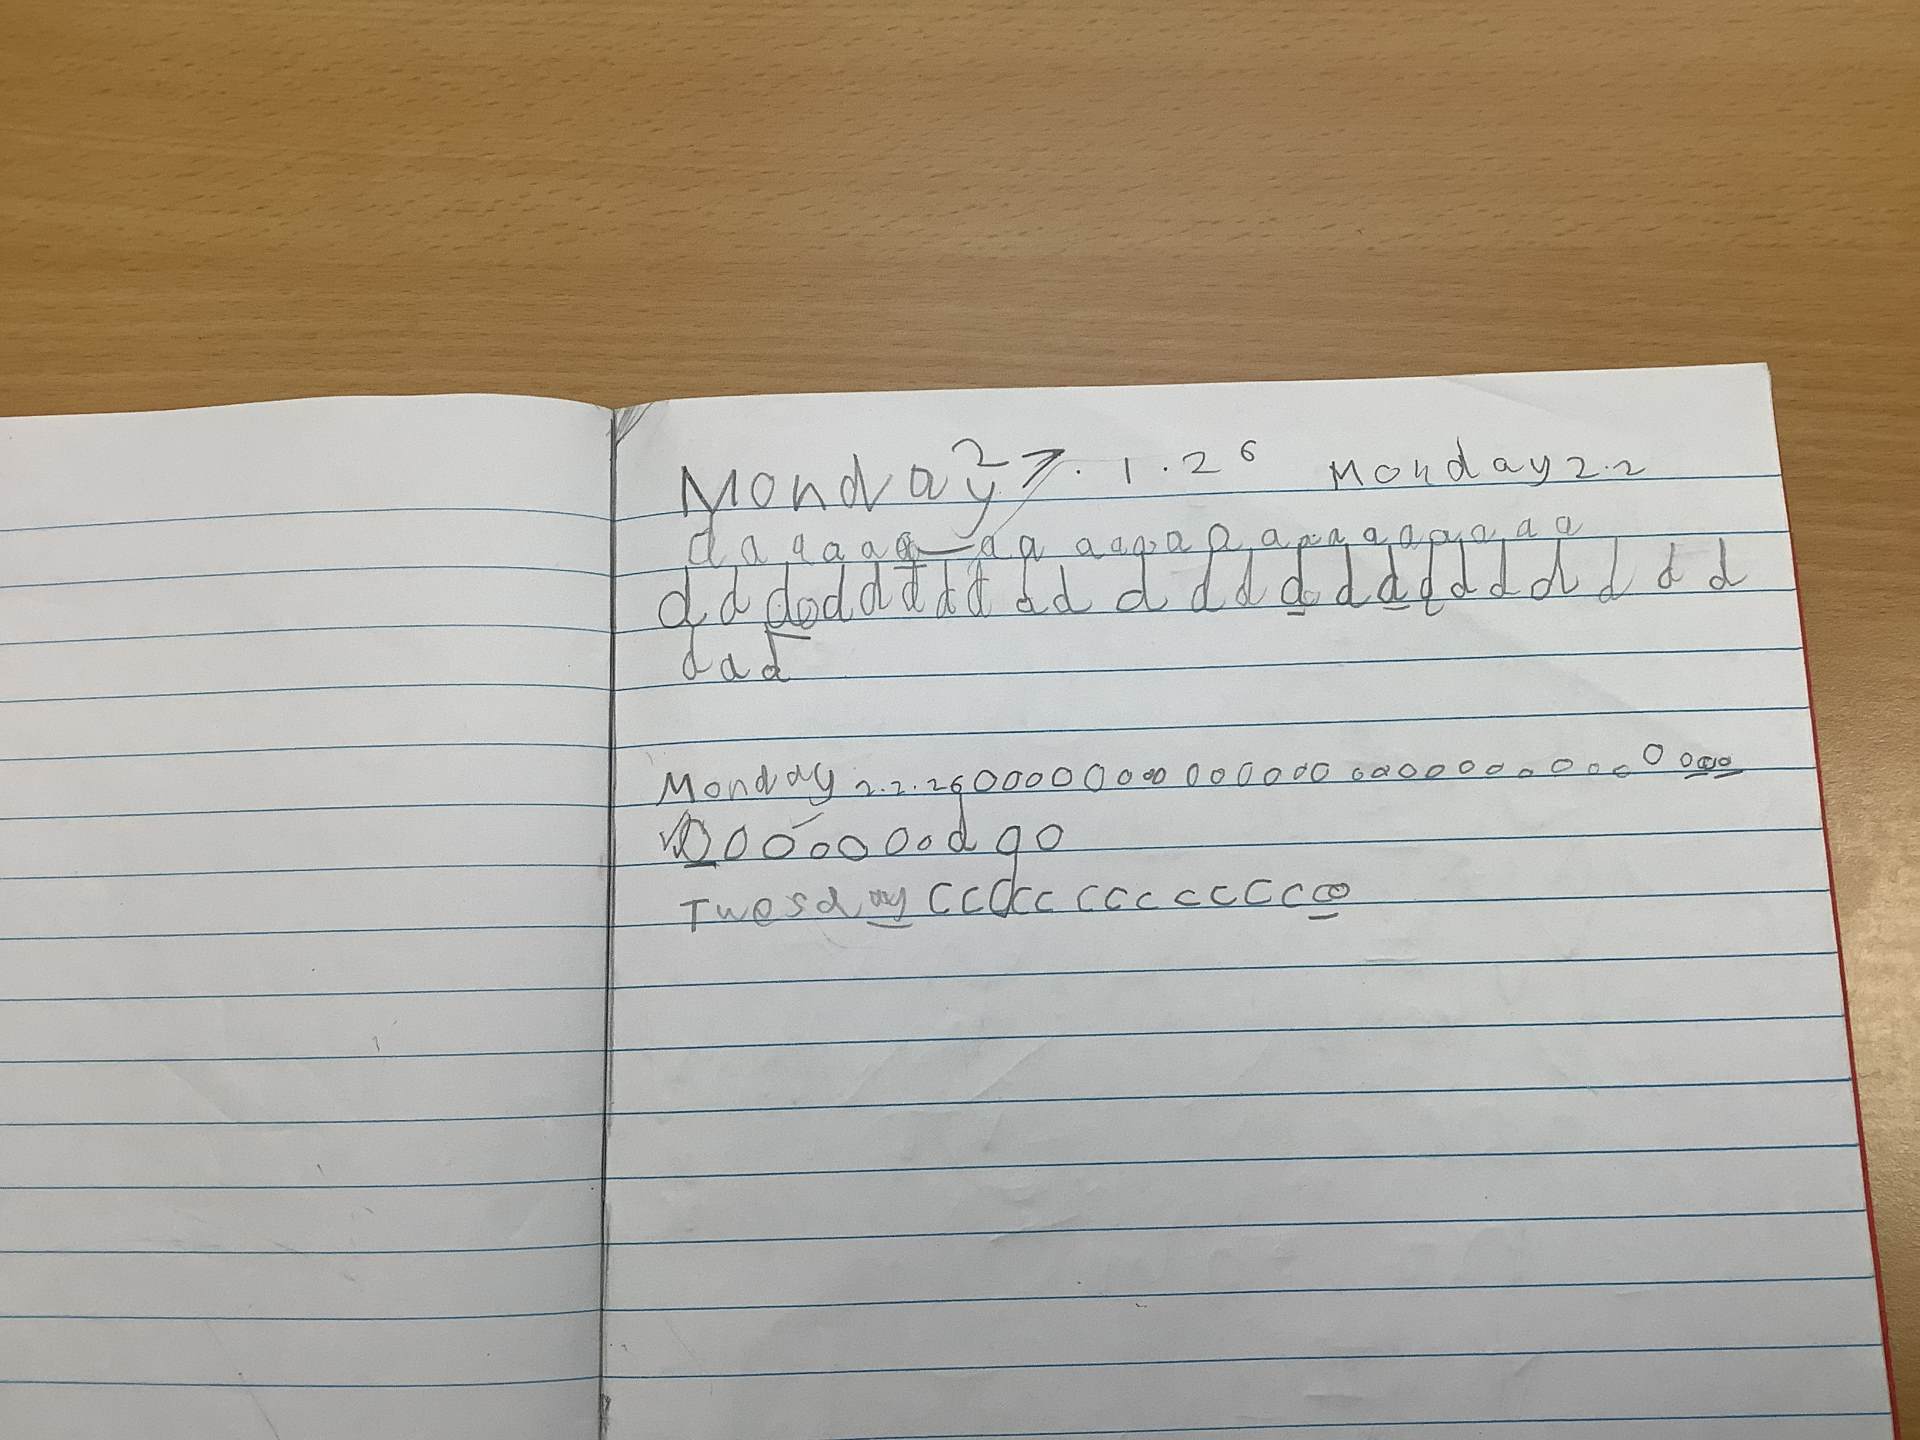 Monday 27.1.26 Monday 2.2
a a a a a a a a a a a a a a a a a a a a a a a a
d d d o d d d d d d d d d d d d d d d d d d d d d d
dad
Monday 2.2.26 o o o o o o o o o o o o o o o o o o o o o o o o o o o o o o
o o o o o o o o d g o
Tuesday c c c c c c c c c c c c c c o